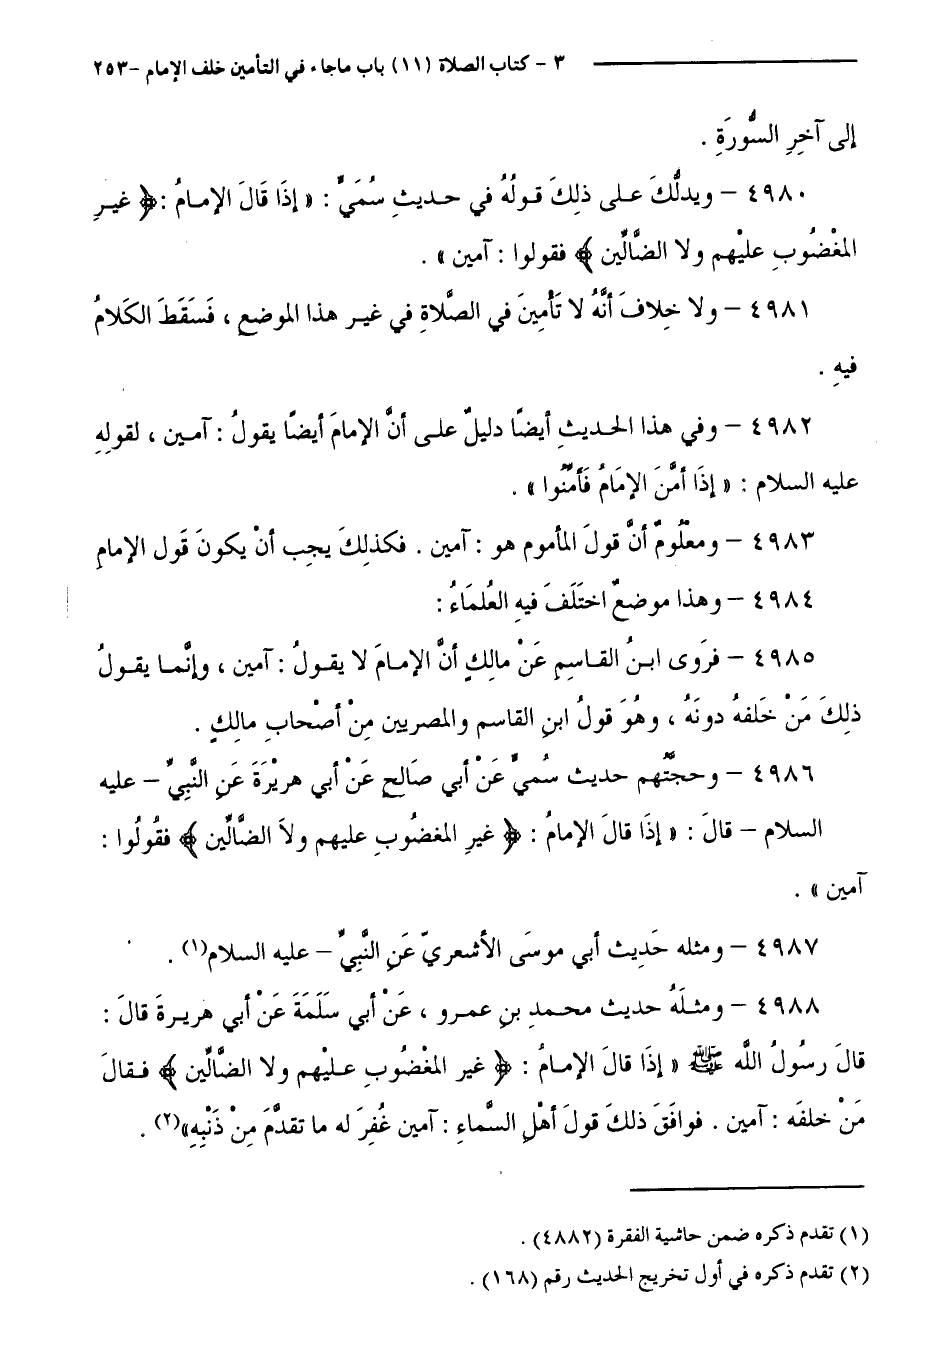 ٣ - كتاب الصلاة (١١) باب ماجاء في التأمين خلف الإمام -٢٥٣
إلى آخِرِ السُّورَةِ .
٤٩٨٠ - ويدلُّكَ على ذلِكَ قولُهُ في حديثِ سُمَيٍّ : « إذَا قَالَ الإمامُ : ﴿ غيرِ
المغْضُوبِ عليْهم ولا الضَّالِّين ﴾ فقولوا : آمين » .
٤٩٨١ - ولا خِلافَ أنَّهُ لا تَأْمِينَ في الصَّلاةِ في غير هذا الموضع ، فَسَقَطَ الكَلامُ
فيهِ .
٤٩٨٢ - وفي هذا الحديثِ أيضًا دليلٌ على أنَّ الإمامَ أيضًا يقولُ : آمين ، لقولِهِ
عليه السلام : « إذَا أمَّنَ الإمَامُ فَأَمِّنُوا » .
٤٩٨٣ - ومعْلُومٌ أنَّ قولَ المأموم هو : آمين . فكذلِكَ يجب أنْ يكونَ قَول الإمامِ
٤٩٨٤ - وهذا موضعٌ اختَلَفَ فيهِ العُلمَاءُ :
٤٩٨٥ - فرَوى ابنُ القاسِمِ عَنْ مالِكٍ أنَّ الإمامَ لا يقولُ : آمين ، وإنَّما يقولُ
ذلِكَ مَنْ خلفهُ دونَهُ ، وهُوَ قولُ ابنِ القاسم والمصريين مِنْ أصْحابِ مالِكٍ .
٤٩٨٦ - وحجَّتُهم حديث سُميٍّ عَنْ أبي صَالحٍ عَنْ أبي هريْرَةَ عَنِ النَّبِيِّ - عليه
السلام - قالَ : « إذَا قالَ الإمامُ : ﴿ غيرِ المغضُوبِ عليهم ولاَ الضَّالِّين ﴾ فقُولُوا :
آمين » .
٤٩٨٧ - ومثله حَدِيث أبي موسَى الأشعريّ عَنِ النَّبِيِّ - عليه السلام(١) .
٤٩٨٨ - ومثلَهُ حديث محمدِ بنِ عمرو ، عَنْ أبي سَلَمَةَ عَنْ أبي هريرةَ قالَ :
قالَ رسُولُ اللَّه ﷺ « إذَا قالَ الإمامُ : ﴿ غير المغْضُوبِ عليْهم ولا الضَّالِّين ﴾ فقالَ
مَنْ خلفَه : آمين . فوافَقَ ذلكَ قولَ أهْلِ السَّماءِ : آمين غُفِرَ له ما تقدَّمَ مِنْ ذَنْبِهِ»(٢) .
(١) تقدم ذكره ضمن حاشية الفقرة (٤٨٨٢) .
(٢) تقدم ذكره في أول تخريج الحديث رقم (١٦٨) .